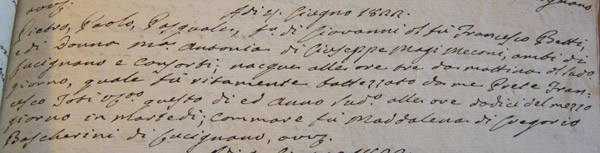 Adi 4. Giugno 1822.
Pietro, Paolo, Pasquale, fo. di Giovanni ol fu Francesco Betti,
e di Donna Ma. Antonia di Giuseppe Magi Meconi, ambi di
Lucignano e Consorti; nacque alle ore tre da mattina di sudo.
giorno, quale fu ritamente battezzato da me Prete Fran-
cesco Toti questo di ed Anno sudo. alle ore dodici del mezzo
giorno in Martedi; Commare fu Maddalena di Gregorio
Bascherini di Lucignano,
Giugno 1822.